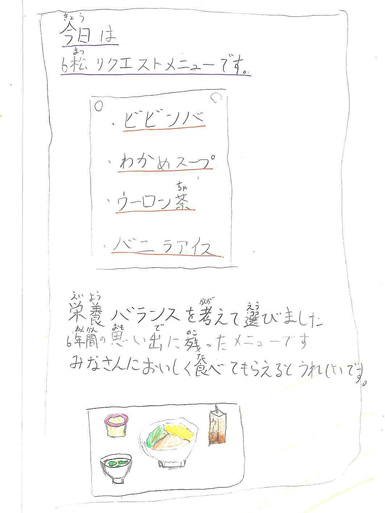 今日は
6松リクエストメニューです。
・ビビンバ
・わかめスープ
・ウーロン茶
・バニラアイス
栄養バランスを考えて選びました
6年間の思い出に残ったメニューです
みなさんにおいしく食べてもらえるとうれしいです。